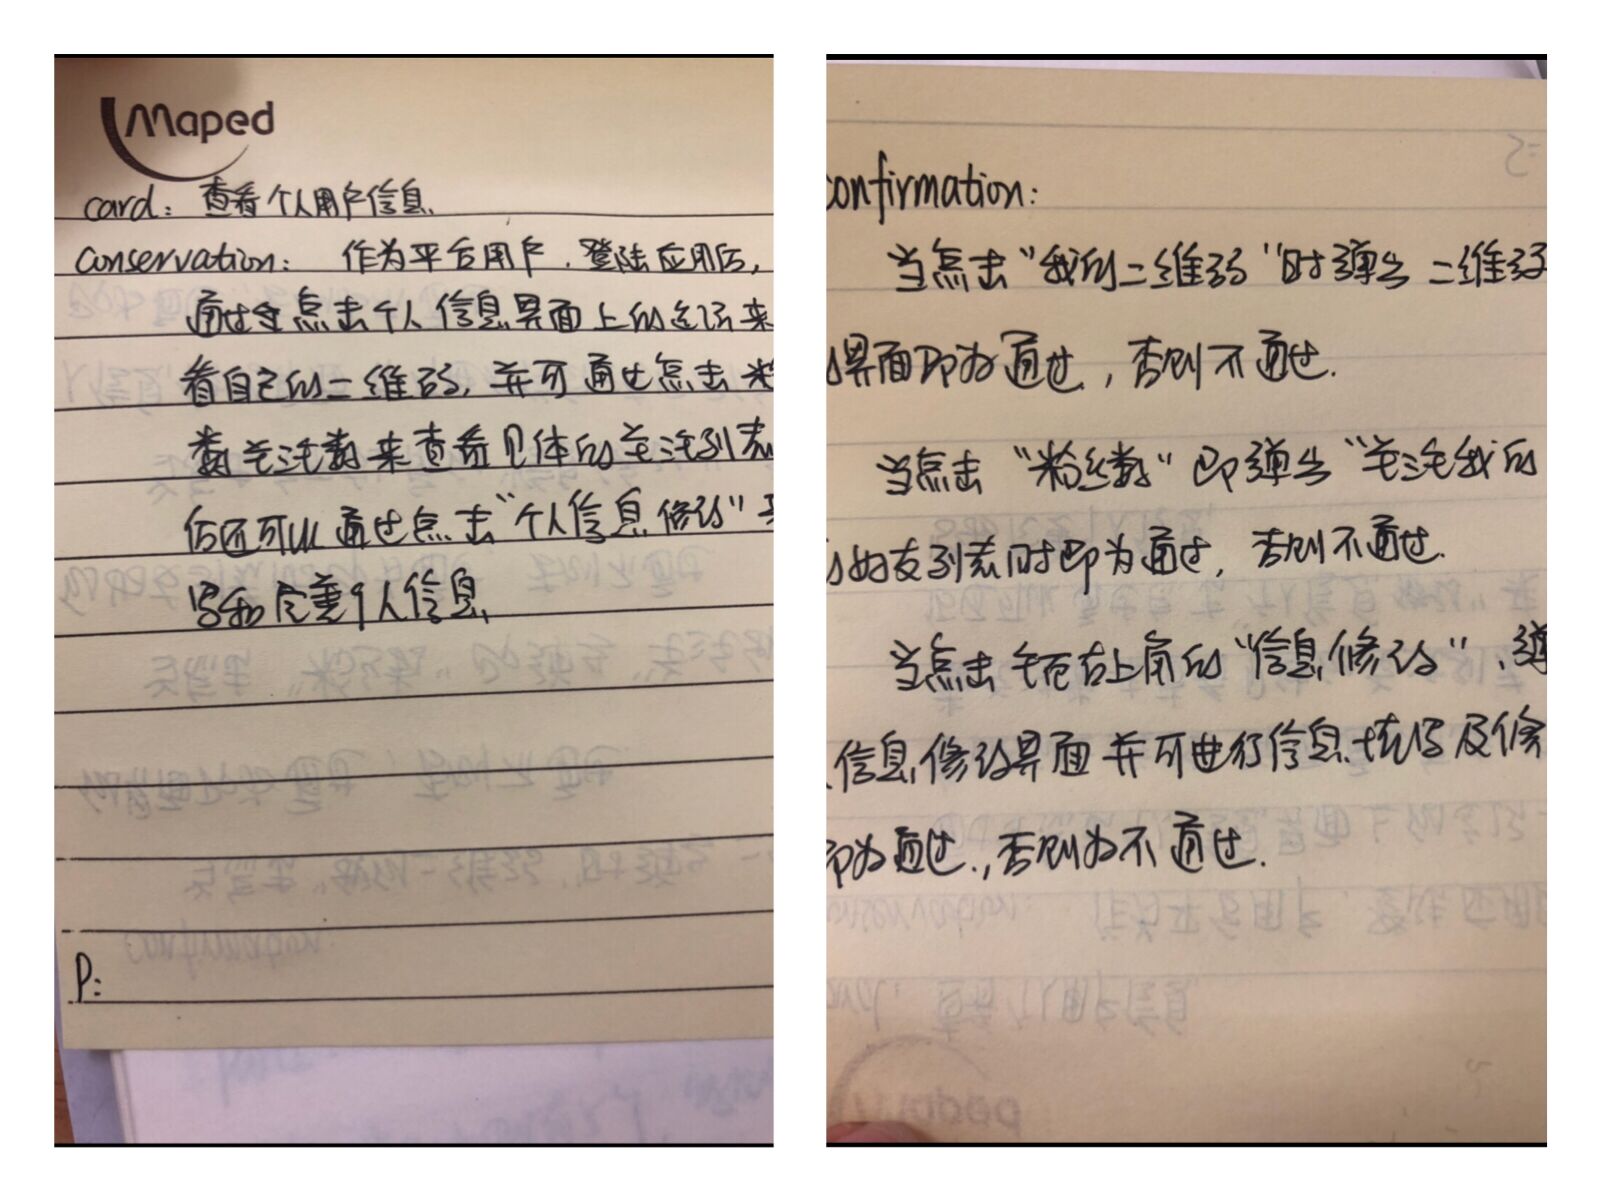 Maped
card: 查看个人用户信息.
conservation: 作为平台用户.登陆应用后,
通过点击个人信息界面上的 来
看自己的二维码,并可通过点击
数关注数来查看具体的关注列表
后还可以通过点击“个人信息修改”
写和完善个人信息.
P:
confirmation:
当点击“我的二维码”时弹出二维码
界面即为通过,否则不通过.
当点击“粉丝数”即弹出“关注我的
好友列表时即为通过,否则不通过.
当点击 右上角的“信息修改”,
信息修改界面并可进行信息填写及修
即为通过.,否则为不通过.